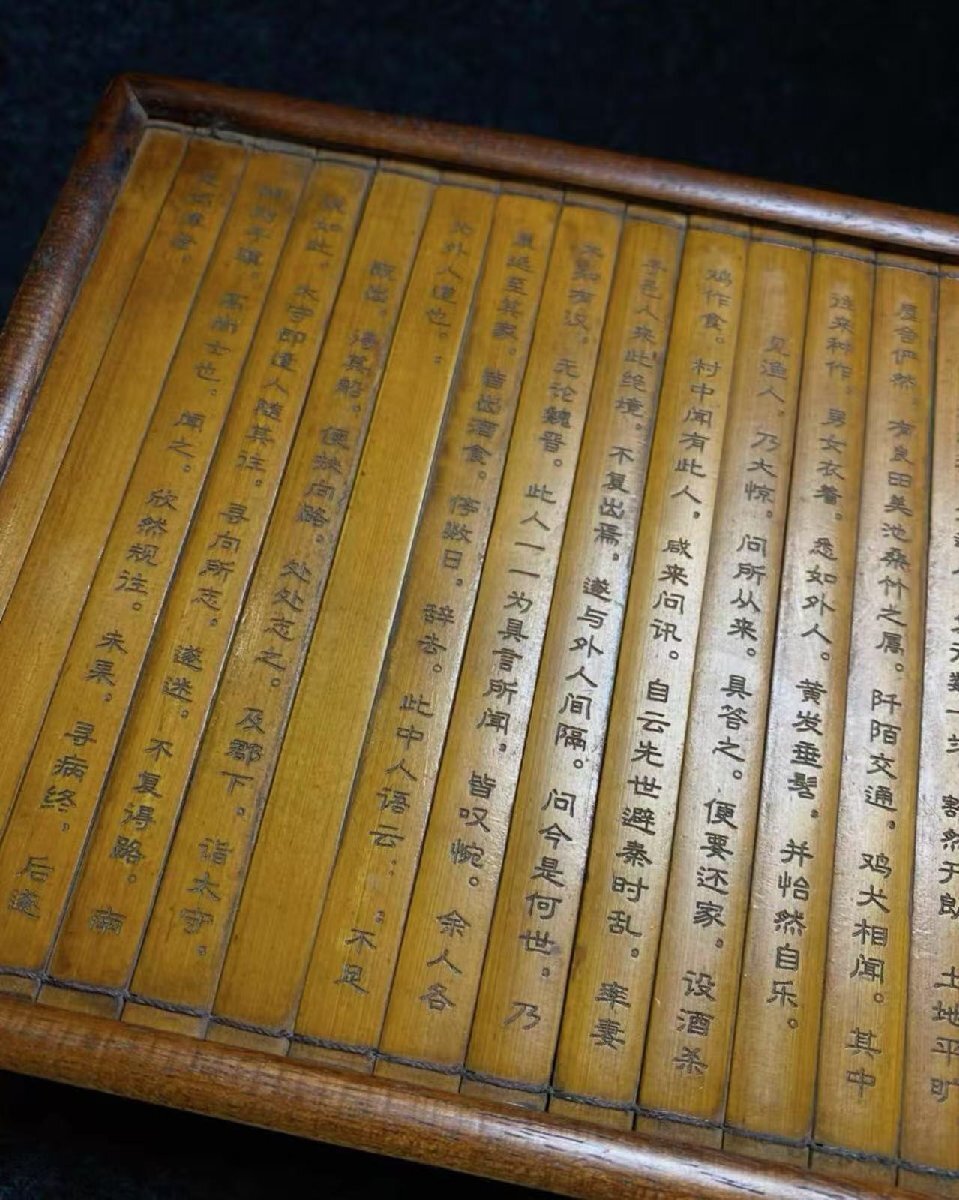 豁然开朗。土地平旷
屋舍俨然。有良田美池桑竹之属。阡陌交通。鸡犬相闻。其中
往来种作。男女衣着。悉如外人。黄发垂髫。并怡然自乐。
见渔人。乃大惊。问所从来。具答之。便要还家。设酒杀
鸡作食。村中闻有此人。咸来问讯。自云先世避秦时乱。率妻
子邑人来此绝境。不复出焉。遂与外人间隔。问今是何世。乃
不知有汉。无论魏晋。此人一一为具言所闻。皆叹惋。余人各
复延至其家。皆出酒食。停数日。辞去。此中人语云：：不足
为外人道也。：
既出。得其船。便扶向路。处处志之。及郡下。诣太守。
说如此。太守即遣人随其往。寻向所志。遂迷。不复得路。南
阳刘子骥。高尚士也。闻之。欣然规往。未果。寻病终。后遂
无问津者。